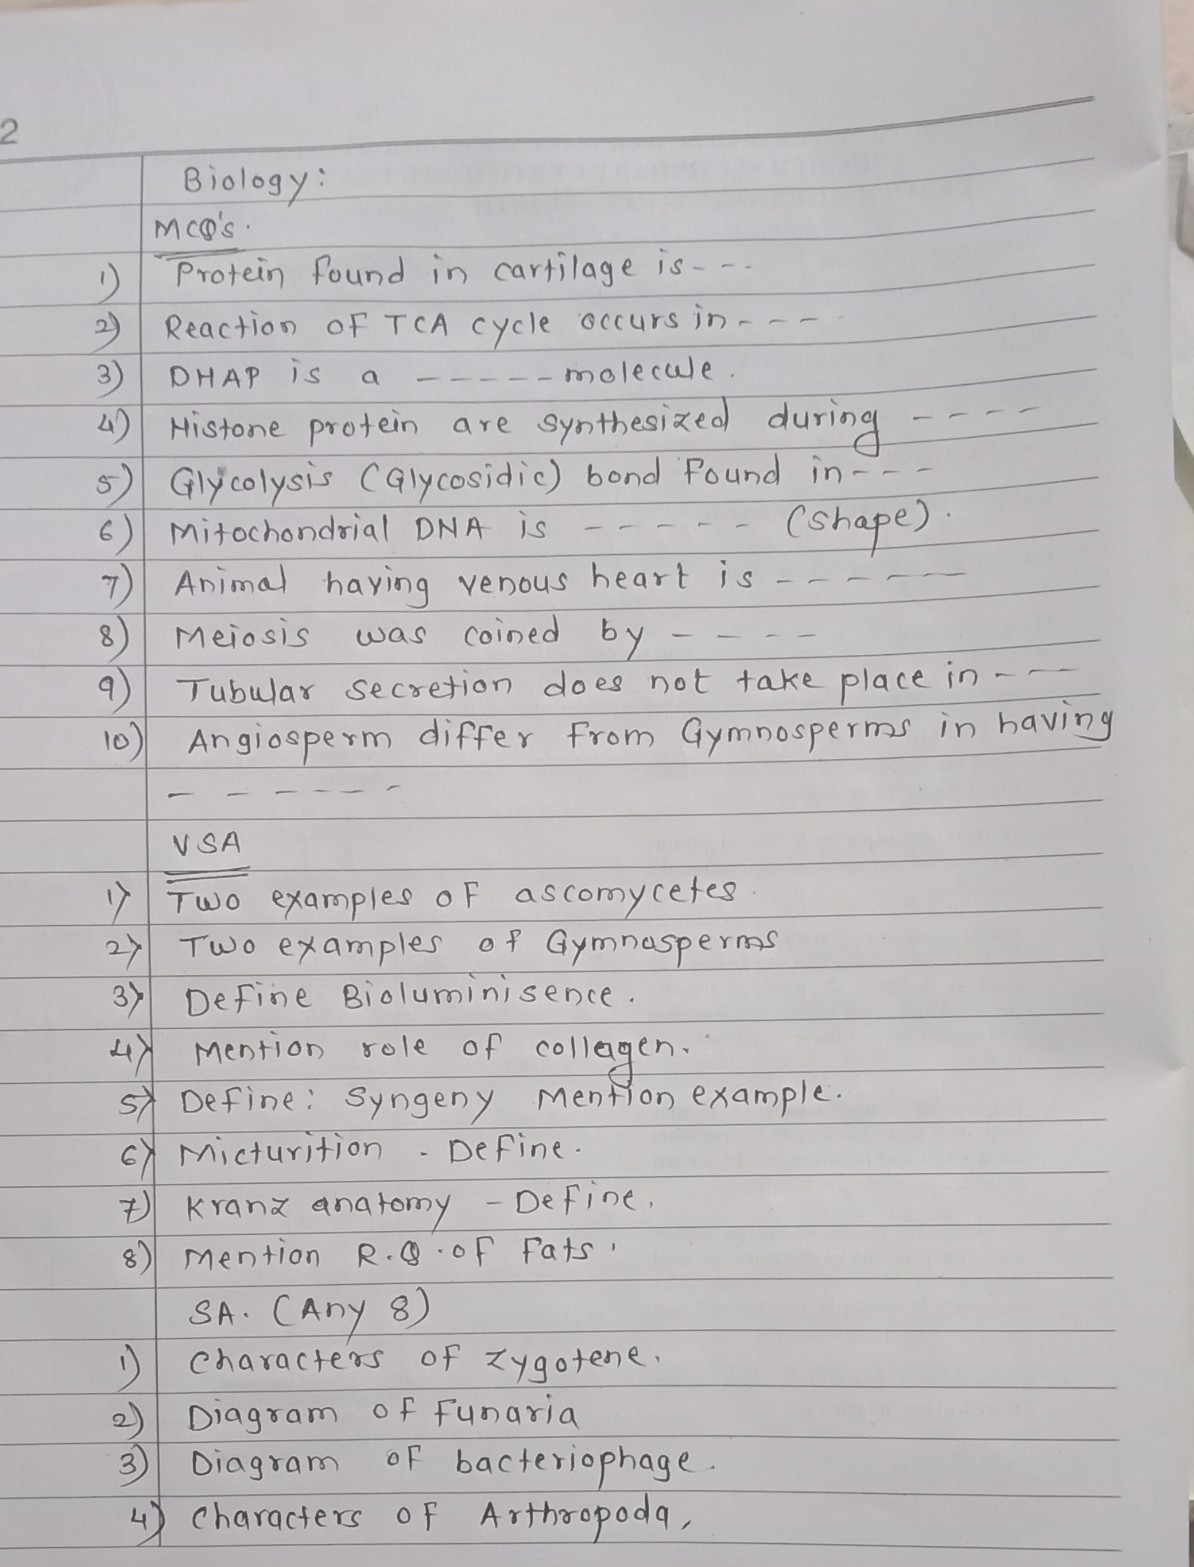 2
Biology:
MCQ's.
1) Protein found in cartilage is - - -
2) Reaction of TCA cycle occurs in - - - -
3) DHAP is a - - - - - molecule.
4) Histone protein are synthesized during - - - -
5) Glycolysis (Glycosidic) bond found in - - -
6) Mitochondrial DNA is - - - - - (shape).
7) Animal having venous heart is - - - - - -
8) Meiosis was coined by - - - -
9) Tubular secretion does not take place in - - -
10) Angiosperm differ from Gymnosperms in having
- - - - - - -
VSA
1) Two examples of ascomycetes.
2) Two examples of Gymnosperms
3) Define Bioluminisence.
4) Mention role of collagen.
5) Define: Syngeny Mention example.
6) Micturition - Define.
7) Kranz anatomy - Define.
8) Mention R.Q. of Fats.
SA. (Any 8)
1) Characters of zygotene.
2) Diagram of Funaria
3) Diagram of bacteriophage.
4) Characters of Arthropoda,